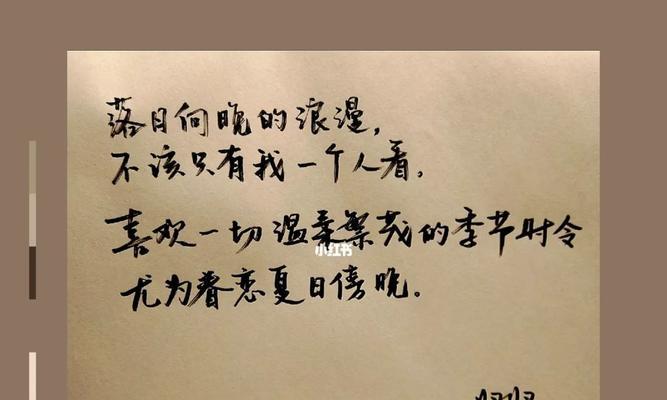 落日向晚的浪漫，
不该只有我一个人看。
喜欢一切温柔繁茂的季节时令
小红书
尤为眷恋夏日傍晚。